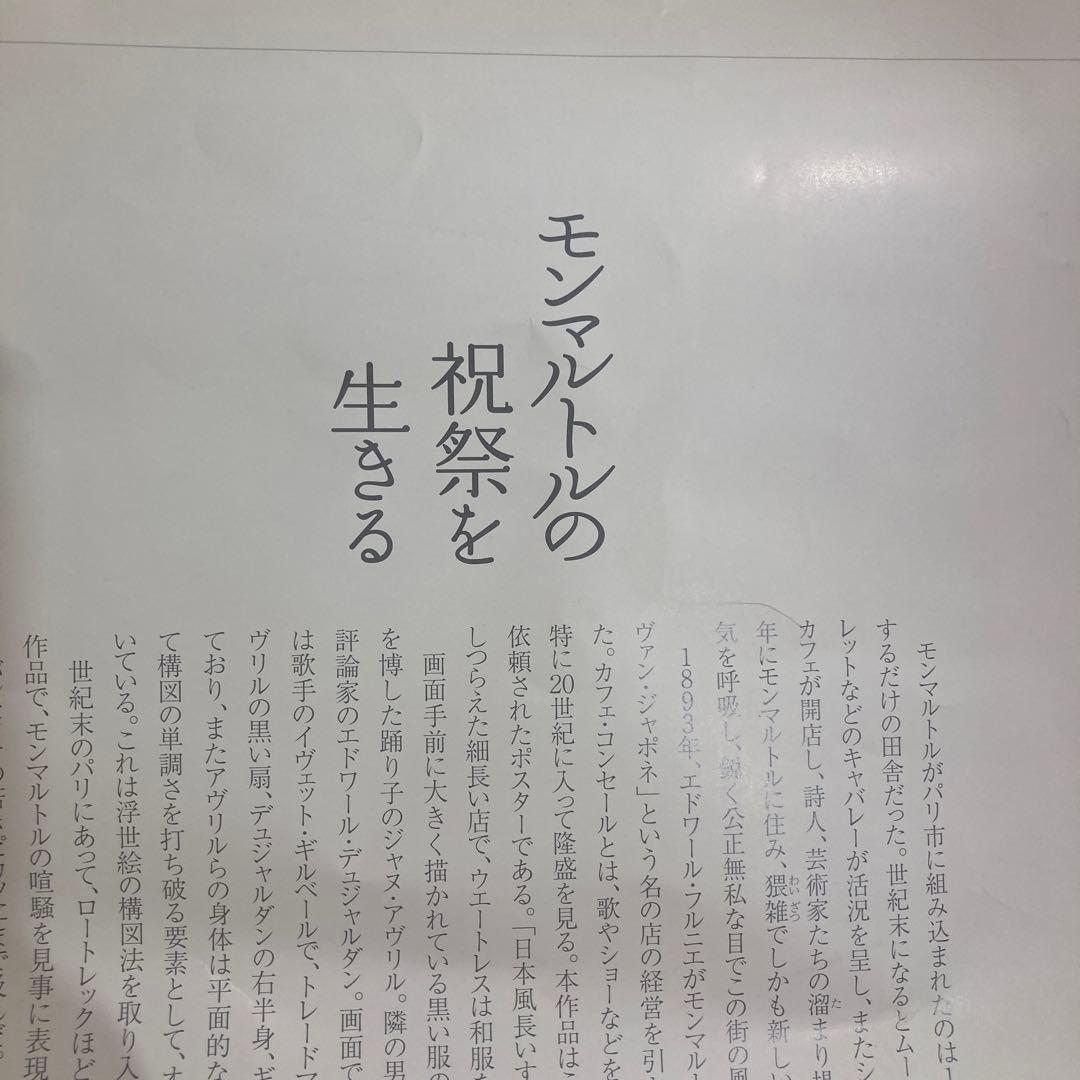 モンマルトルの
祝祭を
生きる
モンマルトルがパリ市に組み込まれたのは
するだけの田舎だった。世紀末になるとムー
レットなどのキャバレーが活況を呈し、また
カフェが開店し、詩人、芸術家たちの溜まり
年にモンマルトルに住み、猥雑でしかも新しい
気を呼吸し、鋭く公正無私な目でこの街の風
1893年、エドワール・フルニエがモンマル
ヴァン・ジャポネ」という名の店の経営を引
た。カフェ・コンセールとは、歌やショーなどを
特に20世紀に入って隆盛を見る。本作品は
依頼されたポスターである。「日本風長いす
しつらえた細長い店で、ウエートレスは和服
画面手前に大きく描かれている黒い服の
を博した踊り子のジャヌ・アヴリル。隣の男
評論家のエドワール・デュジャルダン。画面で
は歌手のイヴェット・ギルベールで、トレード
ヴリルの黒い扇、デュジャルダンの右半身、ギ
ており、またアヴリルらの身体は平面的な
て構図の単調さを打ち破る要素として、オ
いている。これは浮世絵の構図法を取り入
世紀末のパリにあって、ロートレックほど
作品で、モンマルトルの喧騒を見事に表現